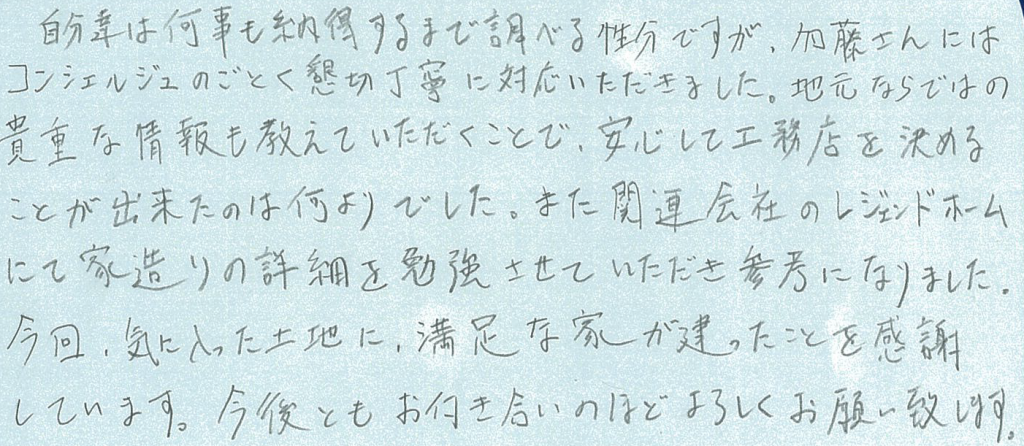 自分達は何事も納得するまで調べる性分ですが、加藤さんには
コンシェルジュのごとく懇切丁寧に対応いただきました。地元ならではの
貴重な情報も教えていただくことで、安心して工務店を決める
ことが出来たのは何よりでした。また関連会社のレジェンドホーム
にて家造りの詳細を勉強させていただき参考になりました。
今回、気に入った土地に、満足な家が建ったことを感謝
しています。今後ともお付き合いのほどよろしくお願い致します。